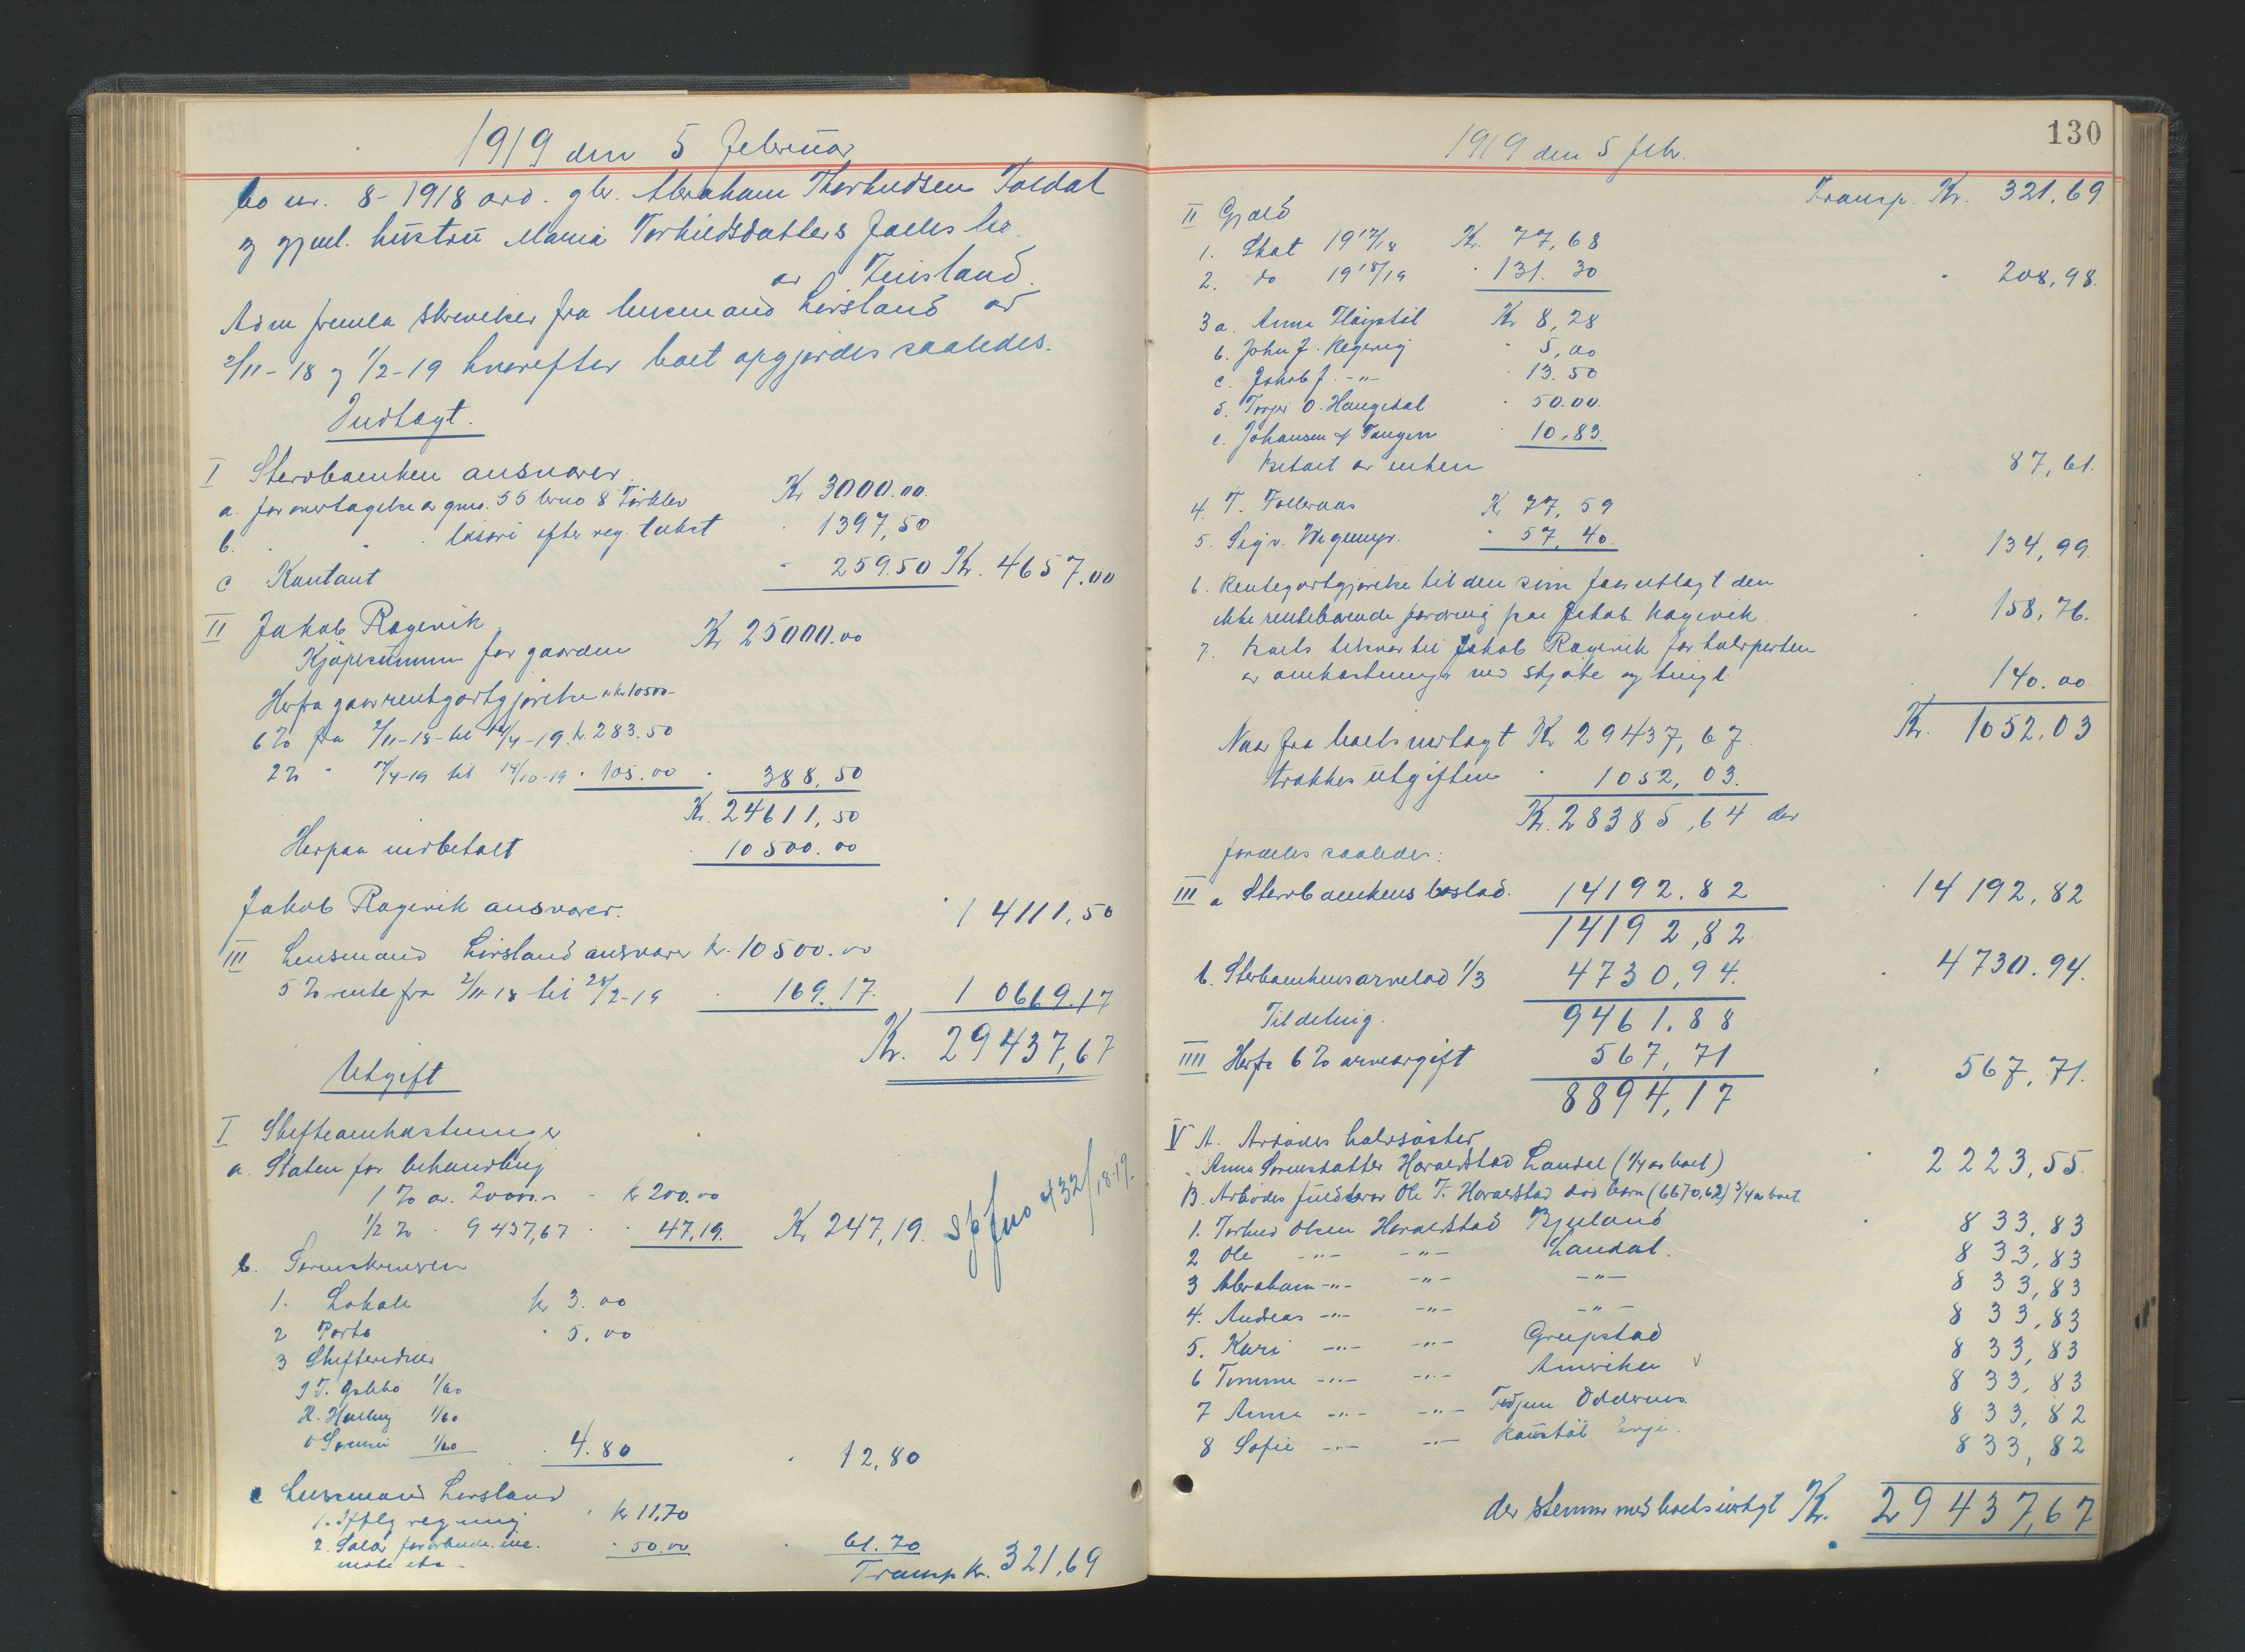 1919 den 5 Februar
bo nr. 8-1918 avd. gbr. Abraham Thorkildsen Foldal
og gjenl. hustru Maria Torkildsdatters fælles bo
av Finsland.
Adm fremla skrivelser fra lensmand Lirsland av
2/11-18 og 1/2-19 hvorefter boet opgjordes saaledes.
Indtægt.
I Stervboenken ansvarer.
a. for overtagelse av gno. 55 brno 8 Kr 3000.00.
b. " " løsøre efter reg. takst " 1397,50
c Kontant " 259.50 Kr. 4657.00
II Jakob Røgevik
Kjøpesummen for gaarden Kr 25000.00
Herfra gaar rentgodtgjørelse a kr 10500-
6 % fra 2/11-18 til 14/4-19. kr. 283.50
2 % " 14/4-19 til 14/10-19 " 105.00 " 388,50
Kr. 24611,50
Herpaa indbetalt " 10500.00
Jakob Røgevik ansvarer. " 14111,50
III Lensmand Lirsland ansvarer kr. 10500.00
5 % rente fra 2/11-18 til 28/2-19 " 169.17. 10669.17
Kr. 29437,67
Utgift
I Skifteomkostninger
a. Staten for behandling
1 % av. 20000.- - kr 200.00
1/2 % " 9437,67 " " 47,19. Kr 247,19.
skj no 432/18-19.
b. Sorenskriveren
1. Lokale kr 3.00
2 Porto " 5,00
3 Skiftevidner
1/60
1/60
1/60 " 4.80 " 12,80
c Lensmand Lirsland
1. Ifølg regning " kr 11,70
2. Salær for
møte etc - " 50.00 " 61.70
Transp kr. 321,69
130
1919 den 5 febr.
Transp. Kr. 321,69.
II Gjæld
1. Skat 1917/18 Kr. 77,68
2. do 1918/19 " 131.30 " 208,98.
3 a. Anna Høiestøl Kr 8,28
b. John J. Røgevig " 5,00
c. Jakob J. -"- " 13.50
d. Torjus O. Haugedal " 50.00.
e. Johansen & Tangen " 10,83.
Betalt av enken " 87,61.
4. T. Folleraas Kr 77,59
5. Sigv. Wegemyr. " 57,40. " 134,99.
6. Rentegodtgjørelse til den som faar utlagt den
ikke rentebærende fordring paa Jakob Røgevik. " 158,76.
7. Boets tilsvar til Jakob Røgevik for halvparten
av omkostninger ved skjøte og tingl. " 140.00
Kr. 1052,03
Naar fra boets indtægt Kr 29437,67.
trækkes utgiften " 1052,03.
Kr. 28385,64 der
fordeles saaledes:
III a Stervboenkens boslod. 14192.82 " 14192,82
14192,82
b. Stervboenkens arvelod 1/3 4730,94. " 4730.94.
Til deling. 9461.88
IIII Herfra 6 % arveavgift 567,71 " 567,71.
8894,17
V A. Avdødes halvsøster
Anna Sorensdatter Haraldstad Laudal (1/4 av boet) " 2223,55.
B. Avdødes fuldbror Ole T. Haraldstad død barn (6670,62) 3/4 av boet
1. Torkild Olsen Haraldstad Bjelland " 833,83
2 Ole -"- -"- Laudal. 833,83
3 Abraham -"- -"- -"- 833,83
4. Andreas -"- -"- -"- 833,83
5. Kari -"- -"- Greipstad 833,83
6 Tomine -"- -"- Amerika v 833,83
7 Anna -"- -"- Oddernes 833,82
8 Sofie -"- -"- 833,82
der stemmer med boets indtægt Kr. 29437,67